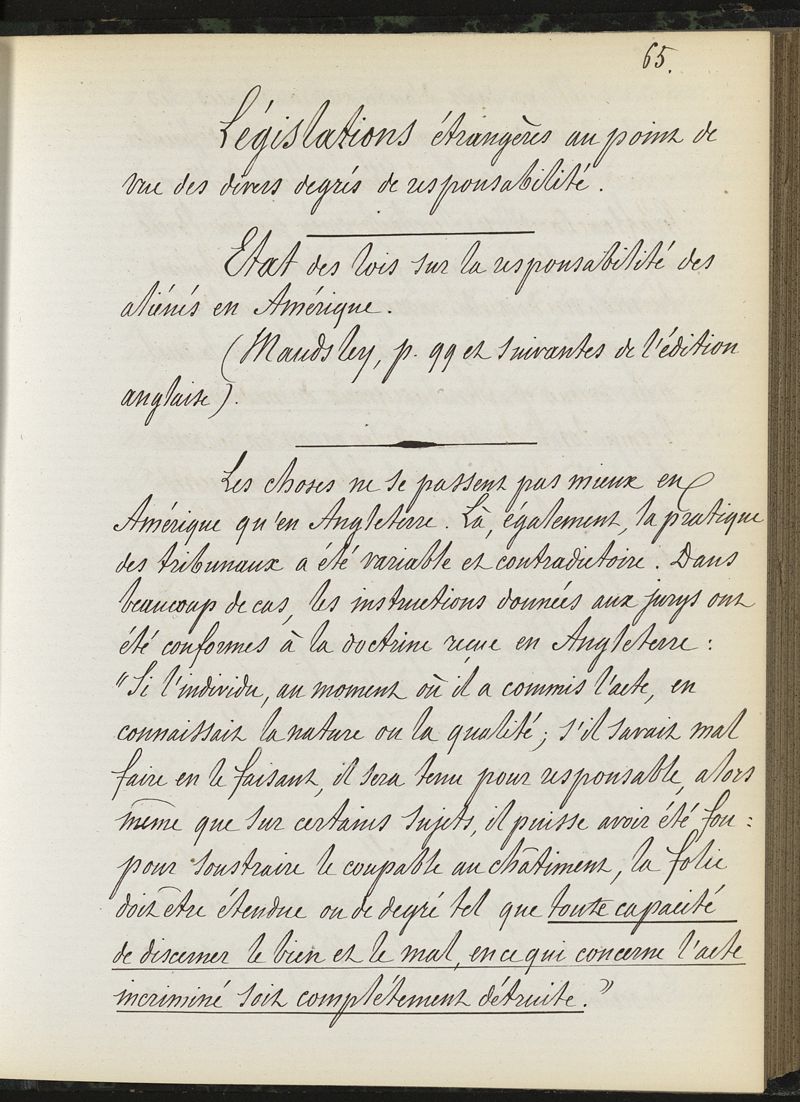 65.
Législations étrangères au point de
vue des divers degrés de responsabilité.
Etat des lois sur la responsabilité des
aliénés en Amérique.
(Maudsley, p. 99 et suivantes de l'édition
anglaise).
Les choses ne se passent pas mieux en
Amérique qu'en Angleterre. Là, également, la pratique
des tribunaux a été variable et contradictoire. Dans
beaucoup de cas, les instructions données aux jurys ont
été conformes à la doctrine reçue en Angleterre :
"Si l'individu, au moment où il a commis l'acte, en
connaissait la nature ou la qualité ; s'il savait mal
faire en le faisant, il sera tenu pour responsable, alors
même que sur certains sujets, il puisse avoir été fou :
pour soustraire le coupable au châtiment, la folie
doit être étendue ou de degré tel que toute capacité
de discerner le bien et le mal, en ce qui concerne l'acte
incriminé soit complétement détruite."